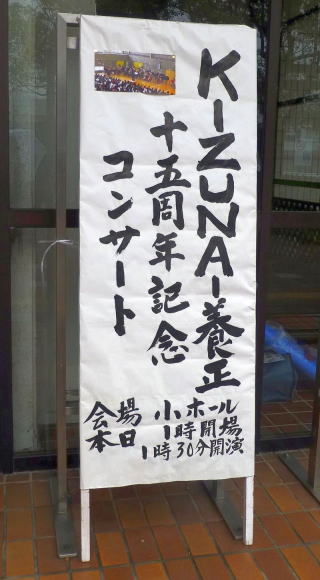 KIZUNA-養正
十五周年記念
コンサート
会場 小ホール
本日 1時開場
1時30分開演